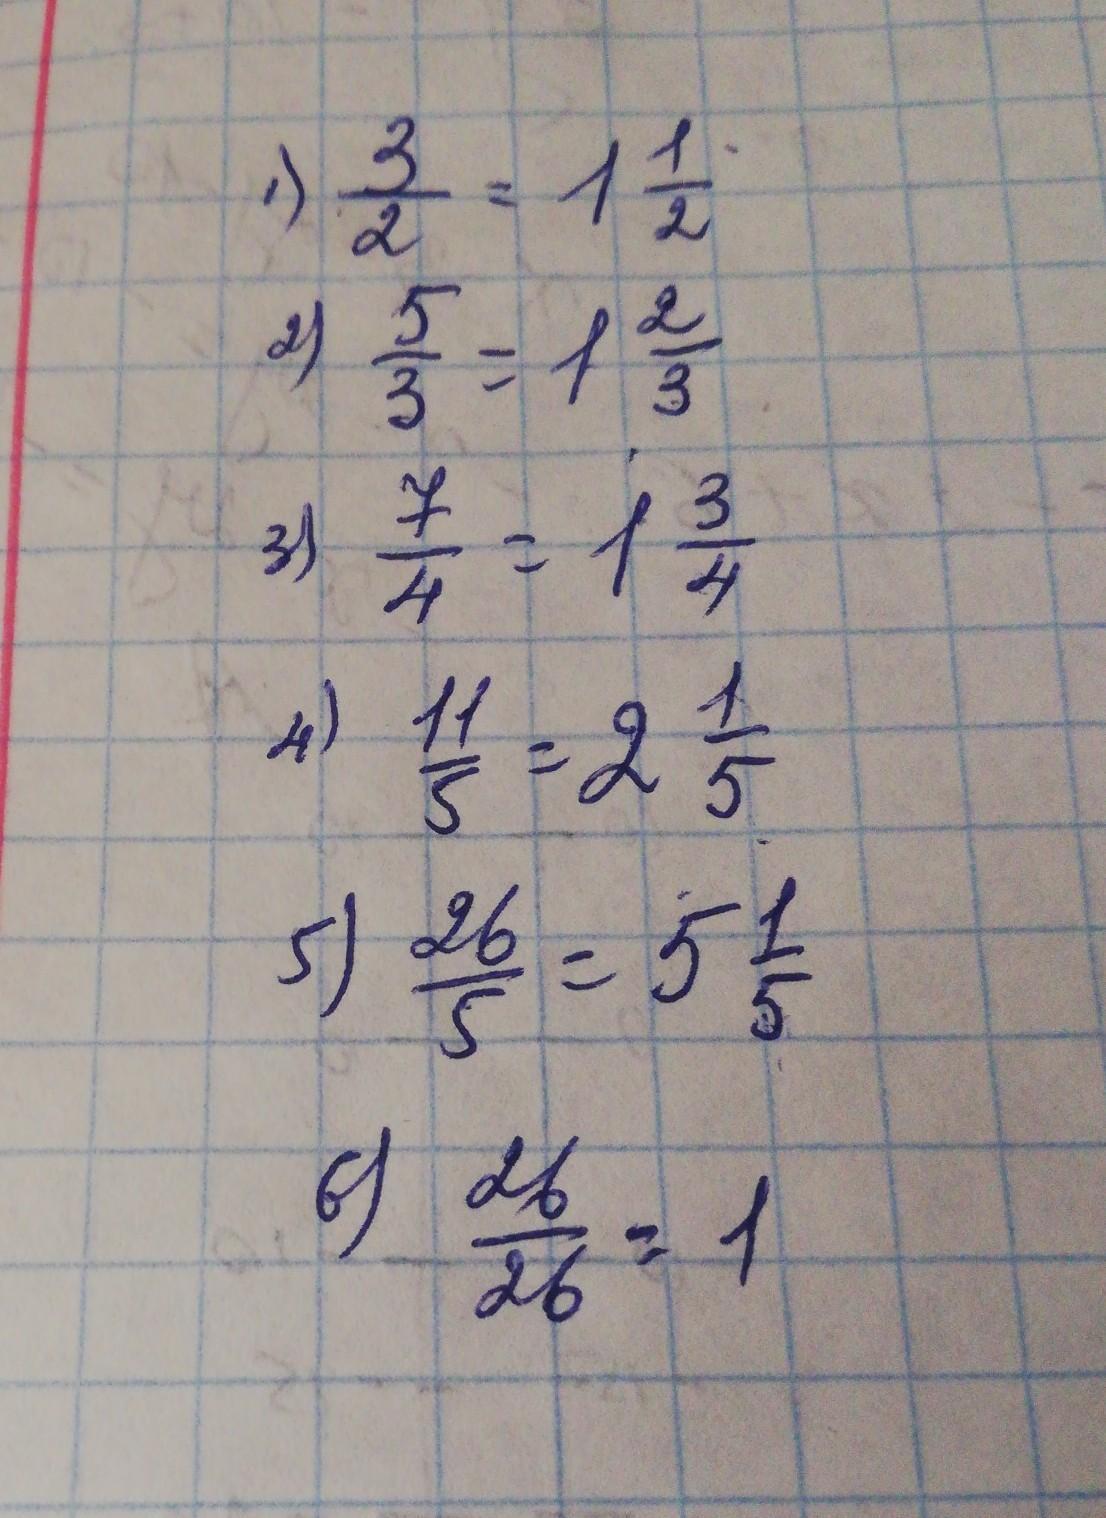 1) 3/2 = 1 1/2
2) 5/3 = 1 2/3
3) 7/4 = 1 3/4
4) 11/5 = 2 1/5
5) 26/5 = 5 1/5
6) 26/26 = 1